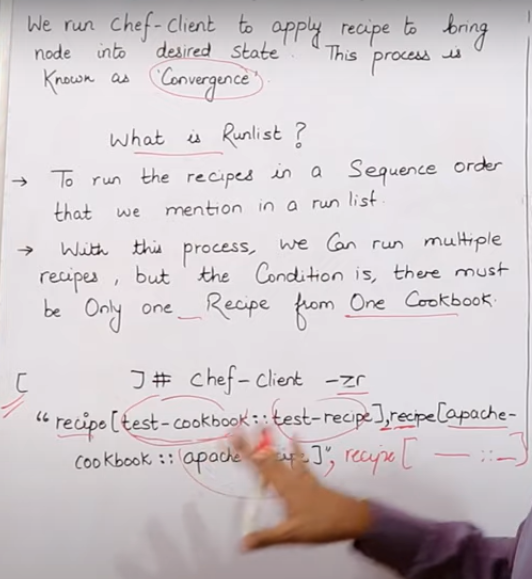 We run Chef-Client to apply recipe to bring
node into desired state. This process is
Known as 'Convergence'.
What is Runlist?
→ To run the recipes in a Sequence order
that we mention in a run list.
→ With this process, we Can run multiple
recipes, but the Condition is, there must
be Only one _ Recipe from One Cookbook.
[ ]# Chef-client -zr
"recipe[test-cookbook::test-recipe],recipe[apache-
cookbook::apache ]", recipe[ — :: — ]